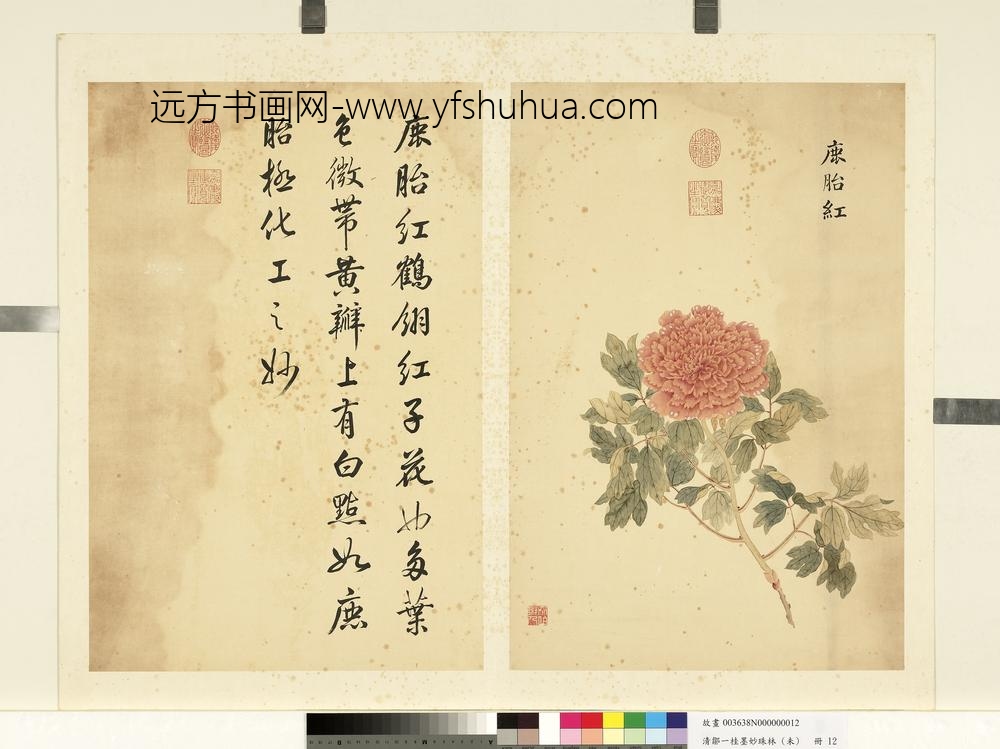 远方书画网-www.yfshuhua.com
鹿胎紅
鹿胎紅鶴翎紅子花也多葉
色微帶黄瓣上有白點如鹿
胎極化工之妙
故畫 003638N000000012
清鄒一桂墨妙珠林（未） 冊 12